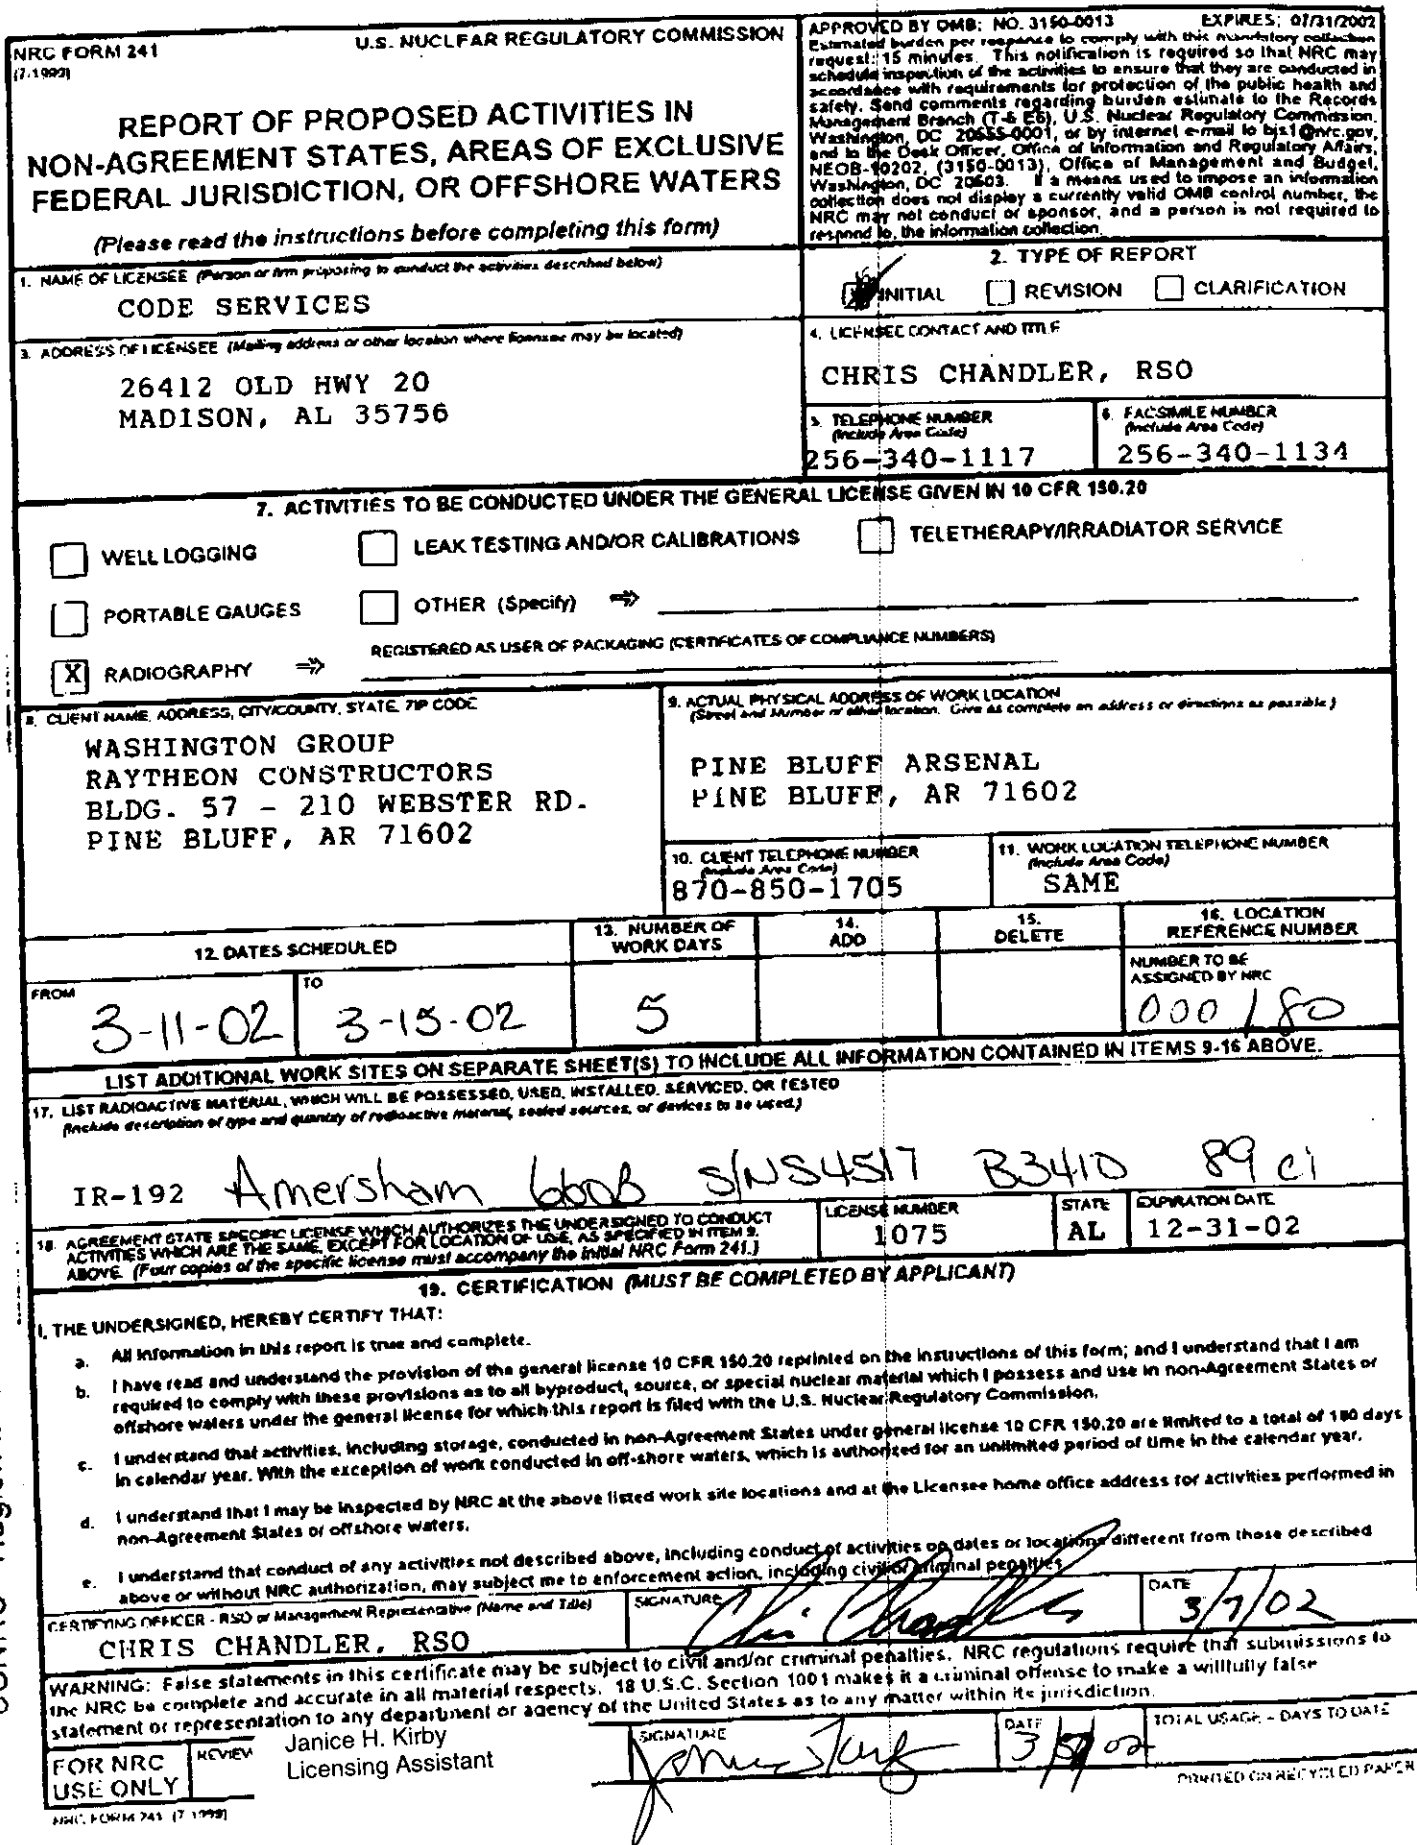 NRC FORM 241
(7-1999)
U.S. NUCLEAR REGULATORY COMMISSION
REPORT OF PROPOSED ACTIVITIES IN
NON-AGREEMENT STATES, AREAS OF EXCLUSIVE
FEDERAL JURISDICTION, OR OFFSHORE WATERS
(Please read the instructions before completing this form)
APPROVED BY OMB: NO. 3150-0013 EXPIRES: 07/31/2002
Estimated burden per response to comply with this mandatory collection
request: 15 minutes. This notification is required so that NRC may
schedule inspection of the activities to ensure that they are conducted in
accordance with requirements for protection of the public health and
safety. Send comments regarding burden estimate to the Records
Management Branch (T-6 E6), U.S. Nuclear Regulatory Commission,
Washington, DC 20555-0001, or by internet e-mail to bjs1@nrc.gov,
and to the Desk Officer, Office of Information and Regulatory Affairs,
NEOB-10202, (3150-0013), Office of Management and Budget,
Washington, DC 20503. If a means used to impose an information
collection does not display a currently valid OMB control number, the
NRC may not conduct or sponsor, and a person is not required to
respond to, the information collection.
1. NAME OF LICENSEE (Person or firm proposing to conduct the activities described below)
CODE SERVICES
2. TYPE OF REPORT
INITIAL REVISION CLARIFICATION
3. ADDRESS OF LICENSEE (Mailing address or other location where licensee may be located)
26412 OLD HWY 20
MADISON, AL 35756
4. LICENSEE CONTACT AND TITLE
CHRIS CHANDLER, RSO
5. TELEPHONE NUMBER
(Include Area Code)
256-340-1117
6. FACSIMILE NUMBER
(Include Area Code)
256-340-1134
7. ACTIVITIES TO BE CONDUCTED UNDER THE GENERAL LICENSE GIVEN IN 10 CFR 150.20
WELL LOGGING LEAK TESTING AND/OR CALIBRATIONS TELETHERAPY/IRRADIATOR SERVICE
PORTABLE GAUGES OTHER (Specify) ⇒
X RADIOGRAPHY ⇒ REGISTERED AS USER OF PACKAGING (CERTIFICATES OF COMPLIANCE NUMBERS)
8. CLIENT NAME, ADDRESS, CITY/COUNTY, STATE, ZIP CODE
WASHINGTON GROUP
RAYTHEON CONSTRUCTORS
BLDG. 57 - 210 WEBSTER RD.
PINE BLUFF, AR 71602
9. ACTUAL PHYSICAL ADDRESS OF WORK LOCATION
(Street and Number or other location. Give as complete an address or directions as possible.)
PINE BLUFF ARSENAL
PINE BLUFF, AR 71602
10. CLIENT TELEPHONE NUMBER
(Include Area Code)
870-850-1705
11. WORK LOCATION TELEPHONE NUMBER
(Include Area Code)
SAME
12. DATES SCHEDULED
13. NUMBER OF
WORK DAYS
14.
ADD
15.
DELETE
16. LOCATION
REFERENCE NUMBER
FROM
3-11-02
TO
3-15-02
5
NUMBER TO BE
ASSIGNED BY NRC
000180
LIST ADDITIONAL WORK SITES ON SEPARATE SHEET(S) TO INCLUDE ALL INFORMATION CONTAINED IN ITEMS 9-16 ABOVE.
17. LIST RADIOACTIVE MATERIAL, WHICH WILL BE POSSESSED, USED, INSTALLED, SERVICED, OR TESTED
(Include description of type and quantity of radioactive material, sealed sources, or devices to be used.)
IR-192 Amersham 660B S/N S4517 B3410 89 ci
18. AGREEMENT STATE SPECIFIC LICENSE WHICH AUTHORIZES THE UNDERSIGNED TO CONDUCT
ACTIVITIES WHICH ARE THE SAME, EXCEPT FOR LOCATION OF USE, AS SPECIFIED IN ITEM 9.
ABOVE. (Four copies of the specific license must accompany the initial NRC Form 241.)
LICENSE NUMBER
1075
STATE
AL
EXPIRATION DATE
12-31-02
19. CERTIFICATION (MUST BE COMPLETED BY APPLICANT)
I, THE UNDERSIGNED, HEREBY CERTIFY THAT:
a. All information in this report is true and complete.
b. I have read and understand the provision of the general license 10 CFR 150.20 reprinted on the instructions of this form; and I understand that I am
required to comply with these provisions as to all byproduct, source, or special nuclear material which I possess and use in non-Agreement States or
offshore waters under the general license for which this report is filed with the U.S. Nuclear Regulatory Commission.
c. I understand that activities, including storage, conducted in non-Agreement States under general license 10 CFR 150.20 are limited to a total of 180 days
in calendar year. With the exception of work conducted in off-shore waters, which is authorized for an unlimited period of time in the calendar year.
d. I understand that I may be inspected by NRC at the above listed work site locations and at the Licensee home office address for activities performed in
non-Agreement States or offshore waters.
e. I understand that conduct of any activities not described above, including conduct of activities on dates or locations different from those described
above or without NRC authorization, may subject me to enforcement action, including civil or criminal penalties.
CERTIFYING OFFICER - RSO or Management Representative (Name and Title)
CHRIS CHANDLER, RSO
SIGNATURE
DATE
3/7/02
WARNING: False statements in this certificate may be subject to civil and/or criminal penalties. NRC regulations require that submissions to
the NRC be complete and accurate in all material respects. 18 U.S.C. Section 1001 makes it a criminal offense to make a willfully false
statement or representation to any department or agency of the United States as to any matter within its jurisdiction.
FOR NRC
USE ONLY
REVIEW
Janice H. Kirby
Licensing Assistant
SIGNATURE
DATE
TOTAL USAGE - DAYS TO DATE
NRC FORM 241 (7-1999)
PRINTED ON RECYCLED PAPER